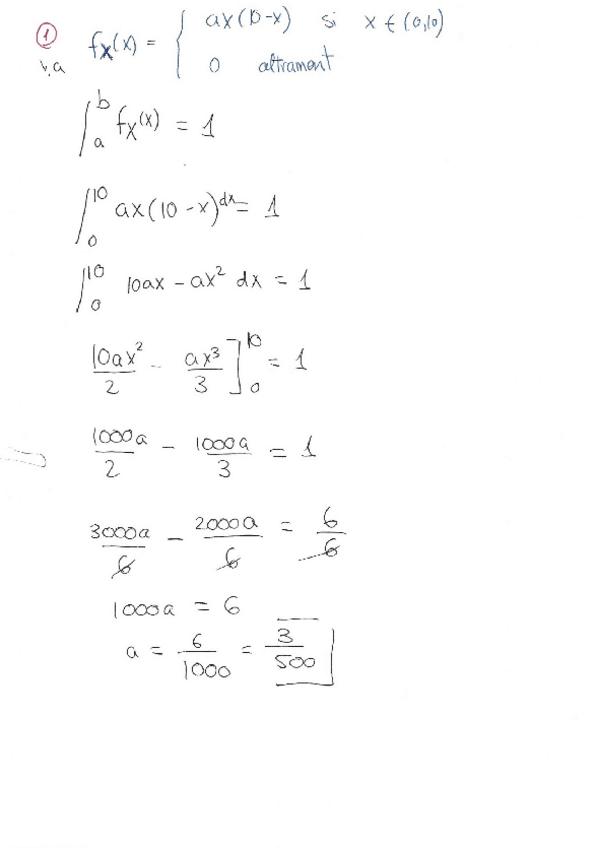 ① fx(x) = { ax(10-x) si x ∈ (0,10)
1,a 0 altrament
∫_a^b fx(x) = 1
∫_0^10 ax(10-x) dx = 1
∫_0^10 10ax - ax² dx = 1
10ax²/2 - ax³/3 ]_0^10 = 1
1000a/2 - 1000a/3 = 1
3000a/6 - 2000a/6 = 6/6
1000a = 6
a = 6/1000 = 3/500